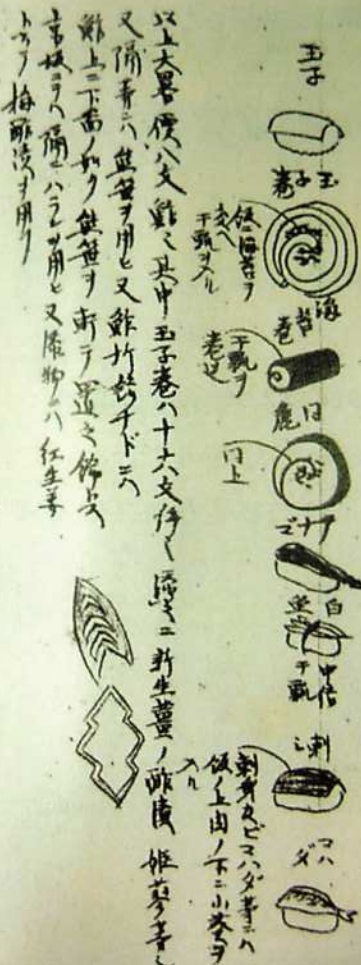 玉子
玉子巻
飯ニ海苔ヲ
交ヘ
干瓢ヲ入ル
海苔巻
干瓢ヲ
巻込
同鹿
同上
アナゴ
白魚
中結
干瓢
刺ミ
刺身及ビコハダ等ニハ
飯ノ上肉ノ下ニ山葵ヲ
入ル
コハダ
以上大畧價八文鮓也其中玉子巻ハ十六文許也添之ニ新生薑ノ酢漬姫蓼等也
又隔等ニハ熊笹ヲ用ヒ又鮓折詰ナドニハ
鮓上ニ下図ノ如ク熊笹ヲ斬テ置之飾トス
京坂ニテハ隔ニハランヲ用ヒ又添物ニハ紅生姜
ト云テ梅酢漬ヲ用フ